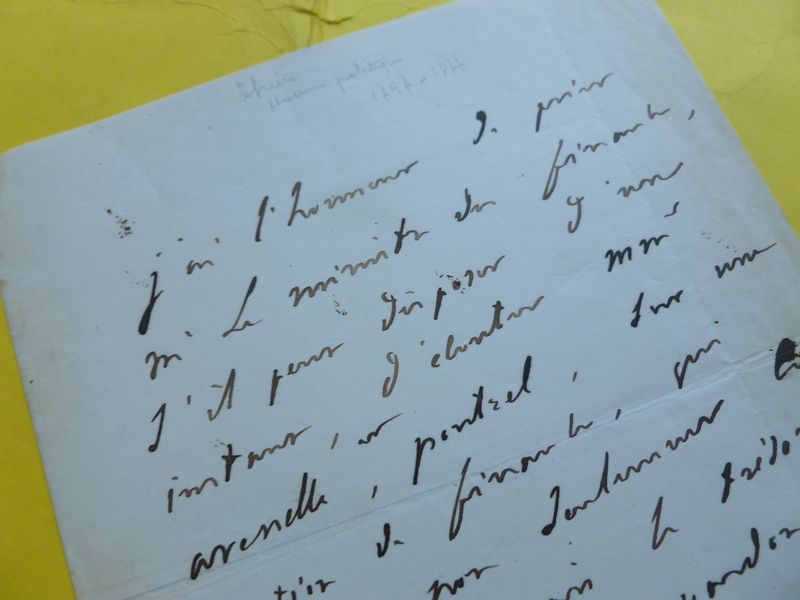 Thiers
Homme politique
1797-1877
j'ai l'honneur de prier
m. Le ministre des finances,
s'il peut disposer d'un
instant, d'écouter mrs
arenelle, et pentzel, sur une
de finances, qui
non seulement
le trésor